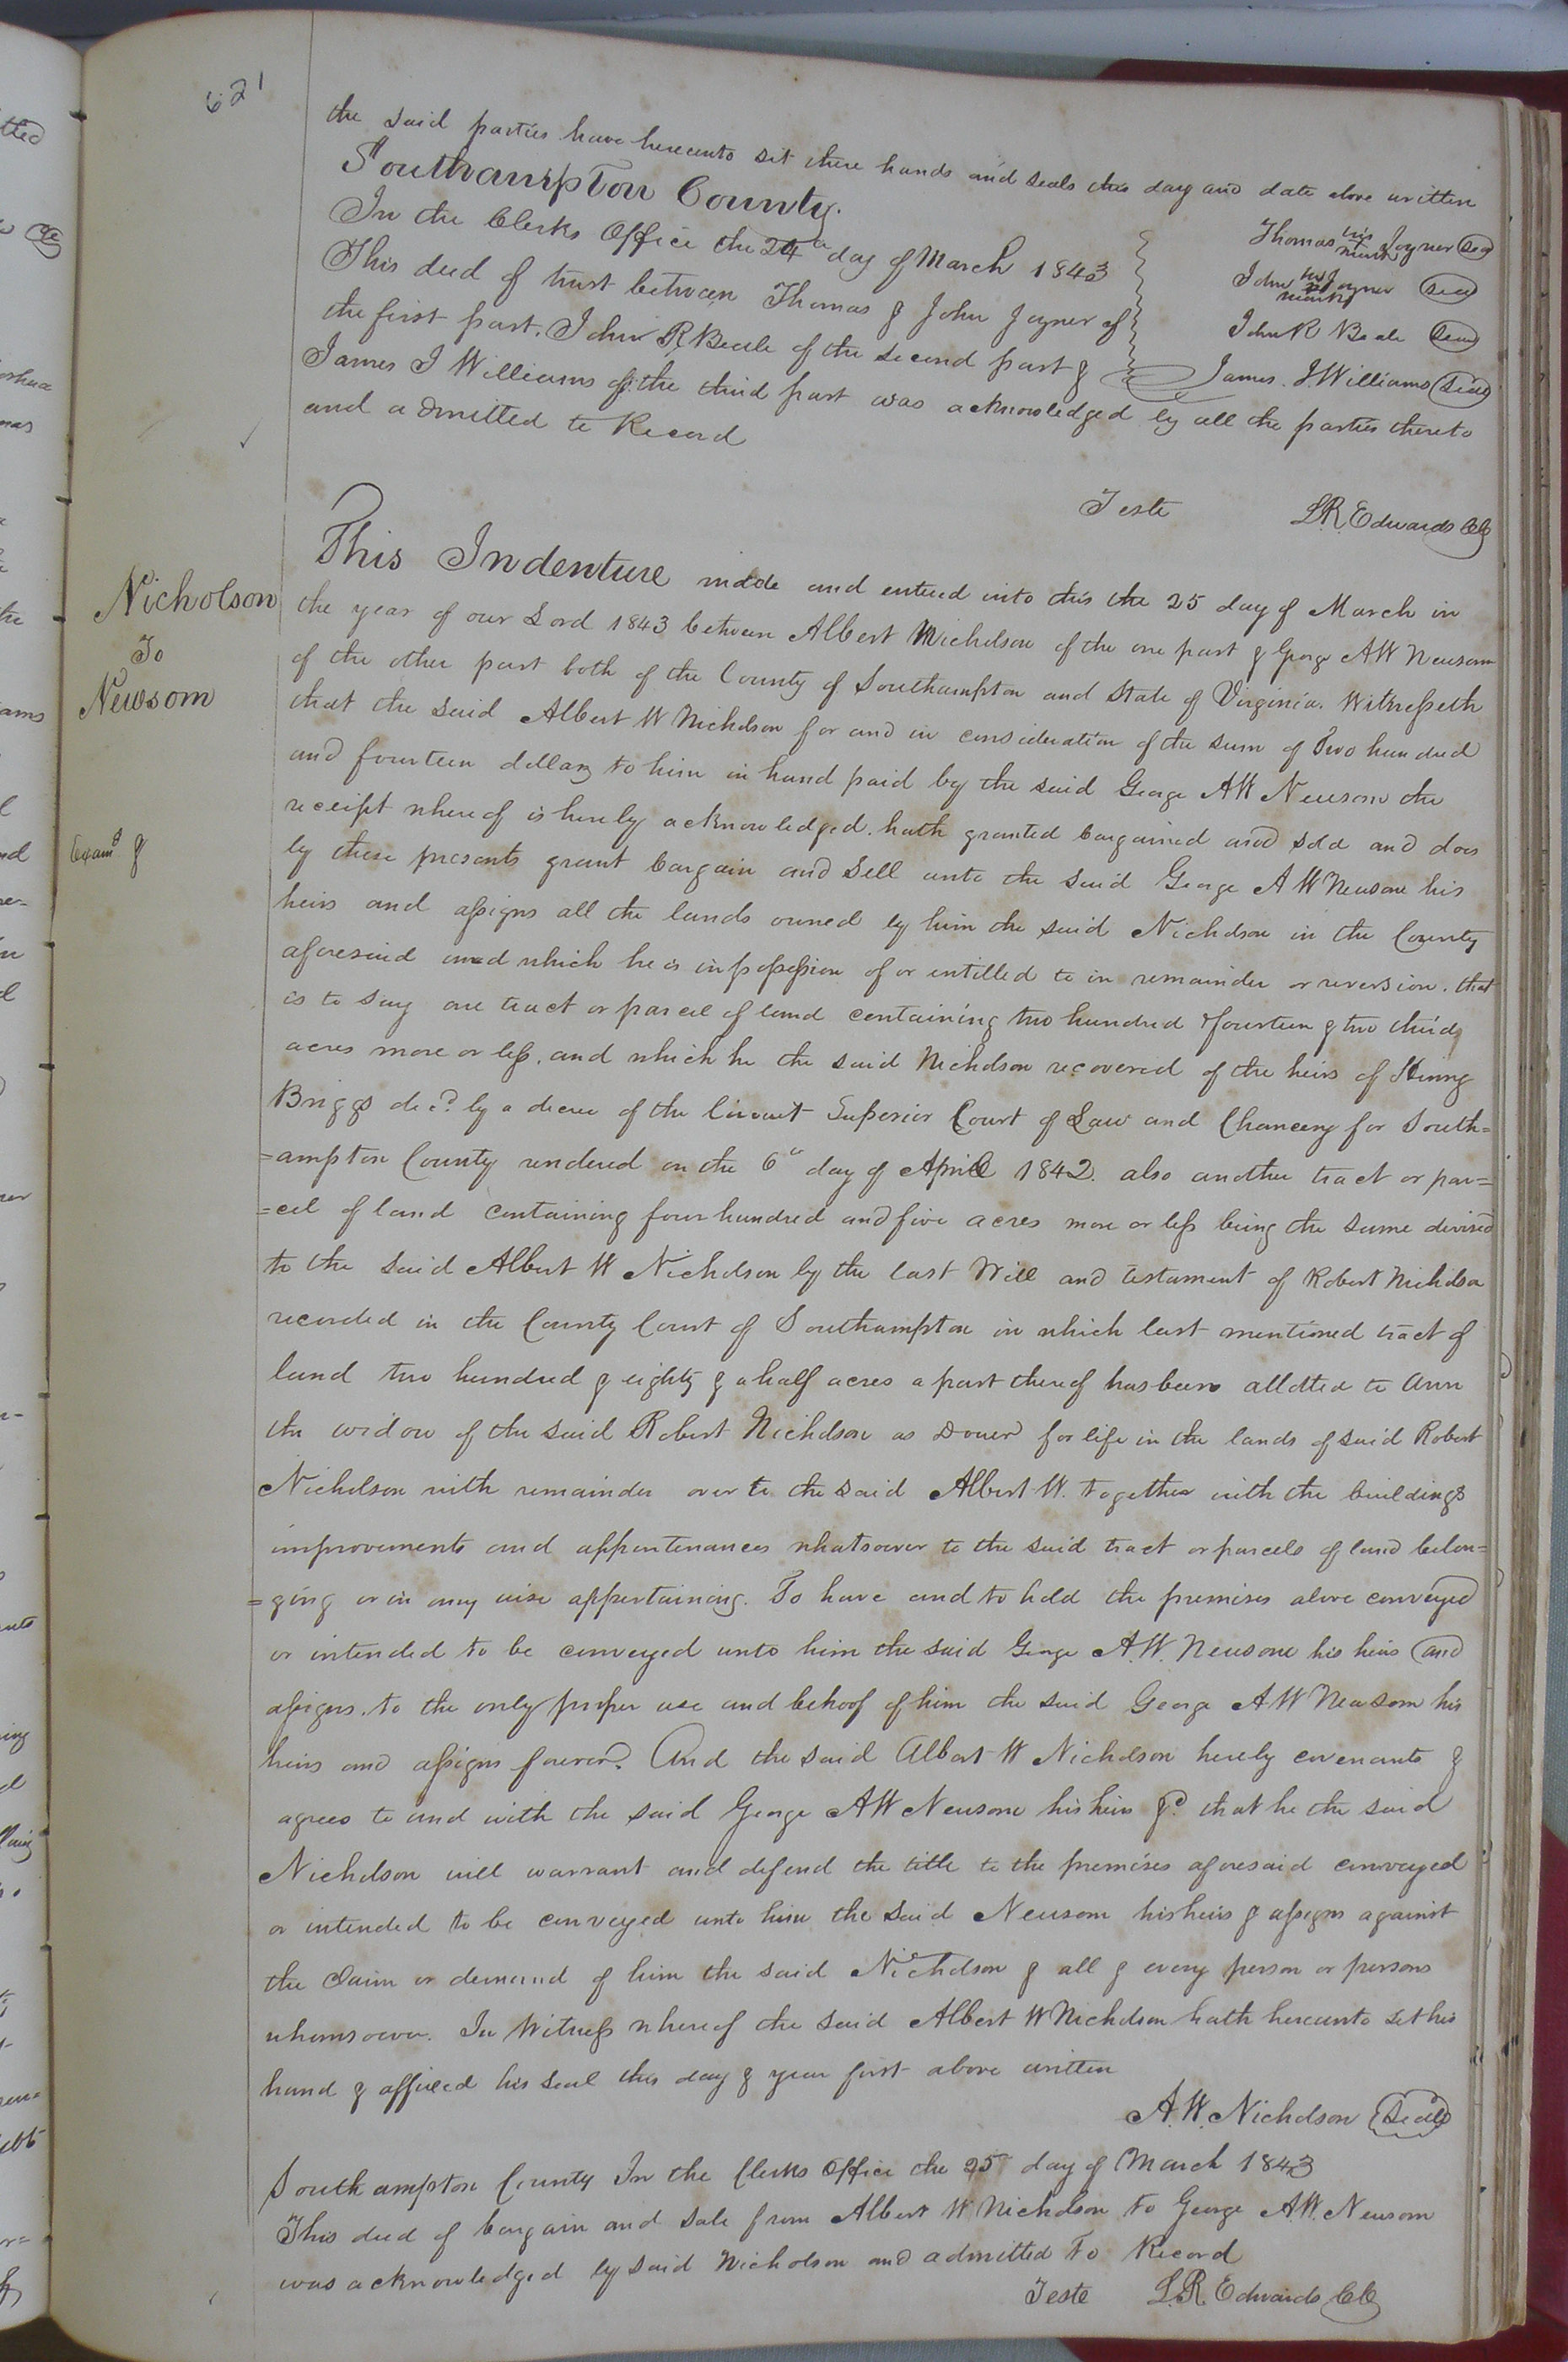 621
the said parties have hereunto set there hands and seals this day and date above written
Southampton County.
In the Clerks Office the 24th day of March 1843
This deed of trust between Thomas & John Joyner of
the first part. John R Beale of the second part &
James J Williams of the third part was acknowledged by all the parties thereto
and admitted to Record
Thomas his mark Joyner Seal
John his mark Joyner Seal
John R Beale Seal
James. J Williams Seal
Teste L.R. Edwards Clk
Nicholson
To
Newsom
Examd &
This Indenture made and entered into this the 25 day of March in
the year of our Lord 1843 between Albert W Nicholson of the one part & George AW Newsom
of the other part both of the County of Southampton and State of Virginia. Witnesseth
that the said Albert W Nicholson for and in consideration of the sum of Two hundred
and fourteen dollars to him in hand paid by the said George AW Newsom the
receipt whereof is hereby acknowledged. hath granted bargained and sold and does
by these presents grant bargain and Sell unto the said George A W Newsom his
heirs and assigns all the lands owned by him the said Nicholson in the County
aforesaid and which he is in possession of or intitled to in remainder or reversion. that
is to say one tract or parcel of land containing two hundred & fourteen & two thirds
acres more or less. and which he the said Nicholson recovered of the heirs of Henry
Briggs decd. by a decree of the Circuit Superior Court of Law and Chancery for South=
=ampton County rendered on the 6th day of April 1842. also another tract or par=
=cel of land containing four hundred and five acres more or less being the same devised
to the said Albert W Nicholson by the last Will and testament of Robert Nicholson
recorded in the County Court of Southampton in which last mentioned tract of
land two hundred & eighty & a half acres a part thereof has been allotted to Ann
the widow of the said Robert Nicholson as Dower for life in the lands of said Robert
Nicholson with remainder over to the said Albert W. together with the buildings
improvements and appurtenances whatsoever to the said tract or parcels of land belon=
=ging or in any wise appertaining. To have and to hold the premises above conveyed
or intended to be conveyed unto him the said George A.W. Newsom his heirs and
assigns. to the only proper use and behoof of him the said George AW Newsom his
heirs and assigns forever. And the said Albert W Nicholson hereby covenants &
agrees to and with the said George AW Newsom his heirs &c. that he the said
Nicholson will warrant and defend the title to the premises aforesaid conveyed
or intended to be conveyed unto him the said Newsom his heirs & assigns against
the Claim or demand of him the said Nicholson & all & every person or persons
whomsoever. In Witness whereof the said Albert W Nicholson hath hereunto set his
hand & affixed his seal this day & year first above written
A. W. Nicholson Seal
Southampton County In the Clerks Office the 25th day of March 1843
This deed of bargain and sale from Albert W Nicholson to George A.W. Newsom
was acknowledged by said Nicholson and admitted To Record
Teste L.R. Edwards Clk